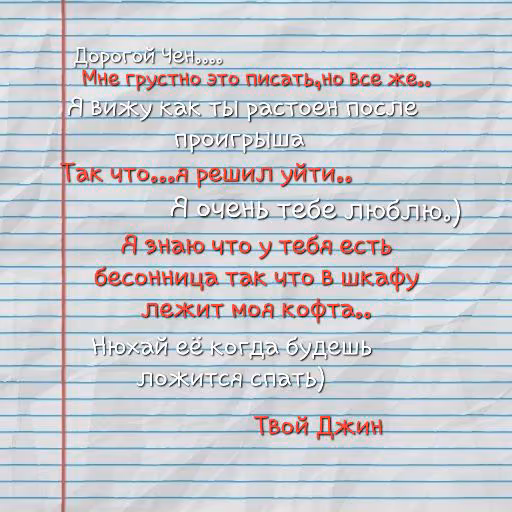 Дорогой Чен....
Мне грустно это писать,но все же..
Я вижу как ты растоен после
проигрыша
Так что...я решил уйти..
Я очень тебе люблю.)
Я знаю что у тебя есть
бесонница так что в шкафу
лежит моя кофта..
Нюхай её когда будешь
ложится спать)
Твой Джин